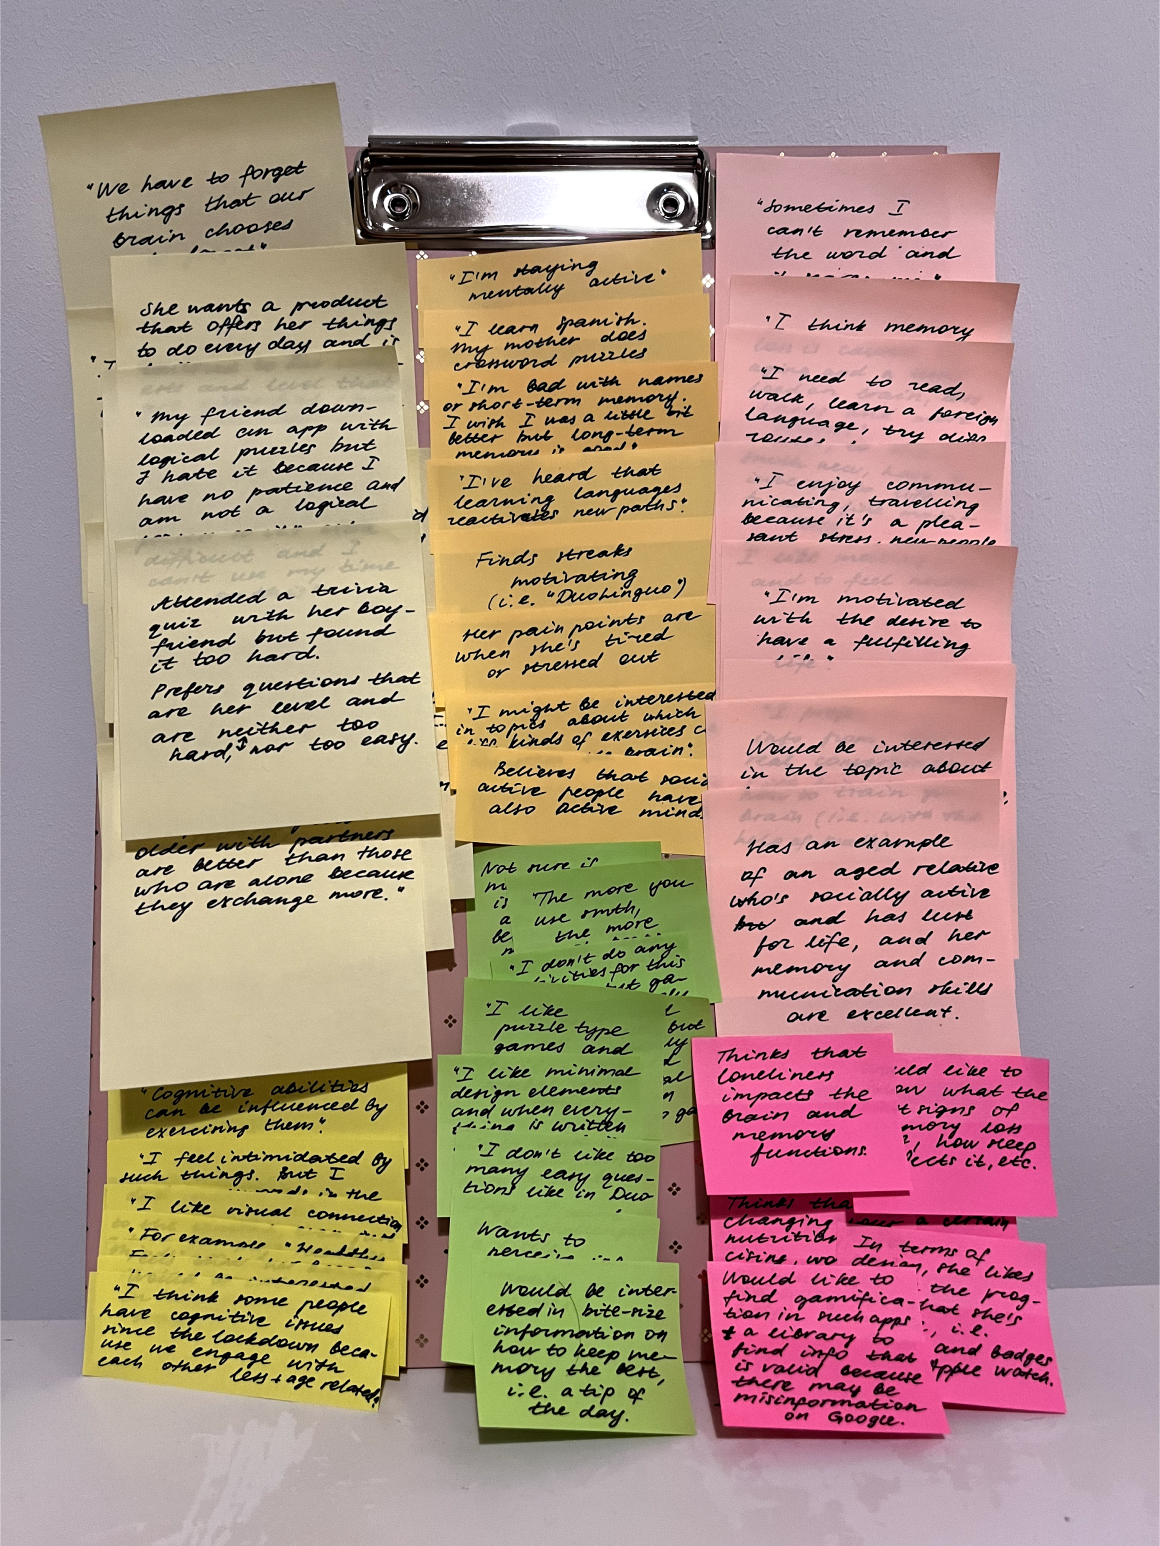 "We have to forget
things that our
brain chooses
She wants a product
that offers her things
to do every day and is
"My friend down-
loaded an app with
logical puzzles but
I hate it because I
have no patience and
am not a logical
difficult and I
can't use my time
Attended a trivia
quiz with her boy-
friend but found
it too hard.
Prefers questions that
are her level and
are neither too
hard, nor too easy.
older with partners
are better than those
who are alone because
they exchange more."
"Cognitive abilities
can be influenced by
exercising them".
"I feel intimidated by
such things. But I
in the
"I like visual connection
"For example, "Healthy
"I think some people
have cognitive issues
since the lockdown beca-
use we engage with
each other less + age related."
"I'm staying
mentally active"
"I learn Spanish.
My mother does
crossword puzzles
"I'm bad with names
or short-term memory.
I wish I was a little bit
better but long-term
memory is good".
"I've heard that
learning languages
reactivates new paths".
Finds streaks
motivating
(i.e. "Duolinguo")
Her pain points are
when she's tired
or stressed out
"I might be interested
in topics about which
kinds of exercises
brain".
Believes that soci
active people have
also active minds
Not sure is
"The more you
use smth,
the more
"I don't do any
ivities for this
"I like
puzzle type
games and
"I like minimal
design elements
and when every-
thing is written
"I don't like too
many easy ques-
tions like in Duo
Wants to
perceive
Would be inter-
ested in bite-size
information on
how to keep me-
mory the best,
i.e. a tip of
the day.
"Sometimes I
can't remember
the word and
"I think memory
"I need to read,
walk, learn a foreign
language, try diff.
"I enjoy commu-
nicating, travelling
because it's a plea-
sant stress, new people
"I'm motivated
with the desire to
have a fulfilling
life"
Would be interested
in the topic about
Has an example
of an aged relative
who's socially active
and has lust
for life, and her
memory and com-
munication skills
are excellent.
Thinks that
loneliness
impacts the
brain and
memory
functions.
uld like to
ow what the
t signs of
mory loss
, how sleep
ects it, etc.
Thinks tha
changing
nutrition
cising, wo
In terms of
design, she likes
the prog-
hat she's
, i.e.
and badges
Apple Watch.
Would like to
find gamifica-
tion in such apps
+ a library to
find info that
is valid because
there may be
misinformation
on Google.